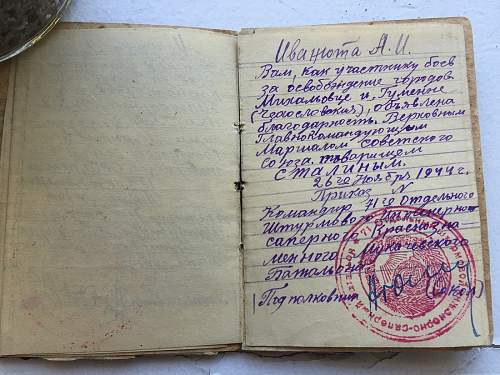 Иванюта А.И.
Вам, как участнику боев
за освобождение городов
Михальовце и Гуменне
(Чехословакия), объявлена
благодарность Верховным
Главнокомандующим
Маршалом Советского
Союза товарищем
СТАЛИНЫМ.
26го Ноября 1944 г.
Приказ N
Командир 71го Отдельного
Штурмового Инженерно
саперного Краснозна
менного Мукачевского
Батальона
Подполковник